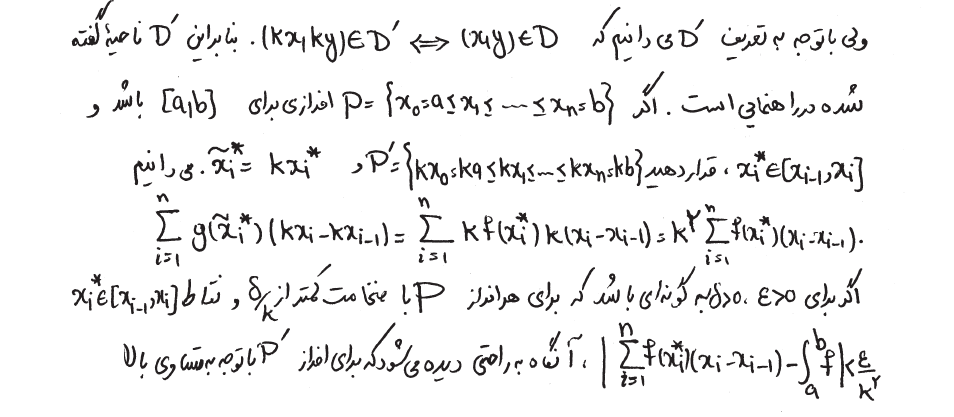 ولی با توجه به تعریف D′ می دانیم که (x,y)∈D ⟺ (kx,ky)∈D′. بنابراین D′ ناحیهٔ گفته
شده در راهنمایی است. اگر P={x₀=a≤x₁≤⋯≤xₙ=b} افرازی برای [a,b] باشد و
xᵢ*∈[xᵢ₋₁,xᵢ]، قرار دهید P′={kx₀=ka≤kx₁≤⋯≤kxₙ=kb} و x̃ᵢ*=kxᵢ*. می دانیم
∑ᵢ₌₁ⁿ g(x̃ᵢ*)(kxᵢ-kxᵢ₋₁)=∑ᵢ₌₁ⁿ kf(xᵢ*)k(xᵢ-xᵢ₋₁)=k²∑ᵢ₌₁ⁿ f(xᵢ*)(xᵢ-xᵢ₋₁).
اگر برای ε>0، δ>0 به گونه‌ای باشد که برای هر افراز P با ضخامت کمتر از δ/k و نقاط xᵢ*∈[xᵢ₋₁,xᵢ]
|∑ᵢ₌₁ⁿ f(xᵢ*)(xᵢ-xᵢ₋₁)-∫ₐᵇ f|<ε/k²، آنگاه به راحتی دیده می‌شود که برای افراز P′ با توجه به تساوی بالا